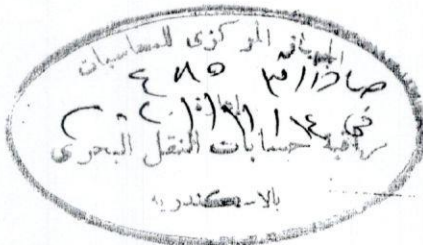 الجهاز المركزى للمحاسبات
صادر رقم ٤٨٥
فى
مراقبة حسابات النقل البحرى
بالاسكندرية